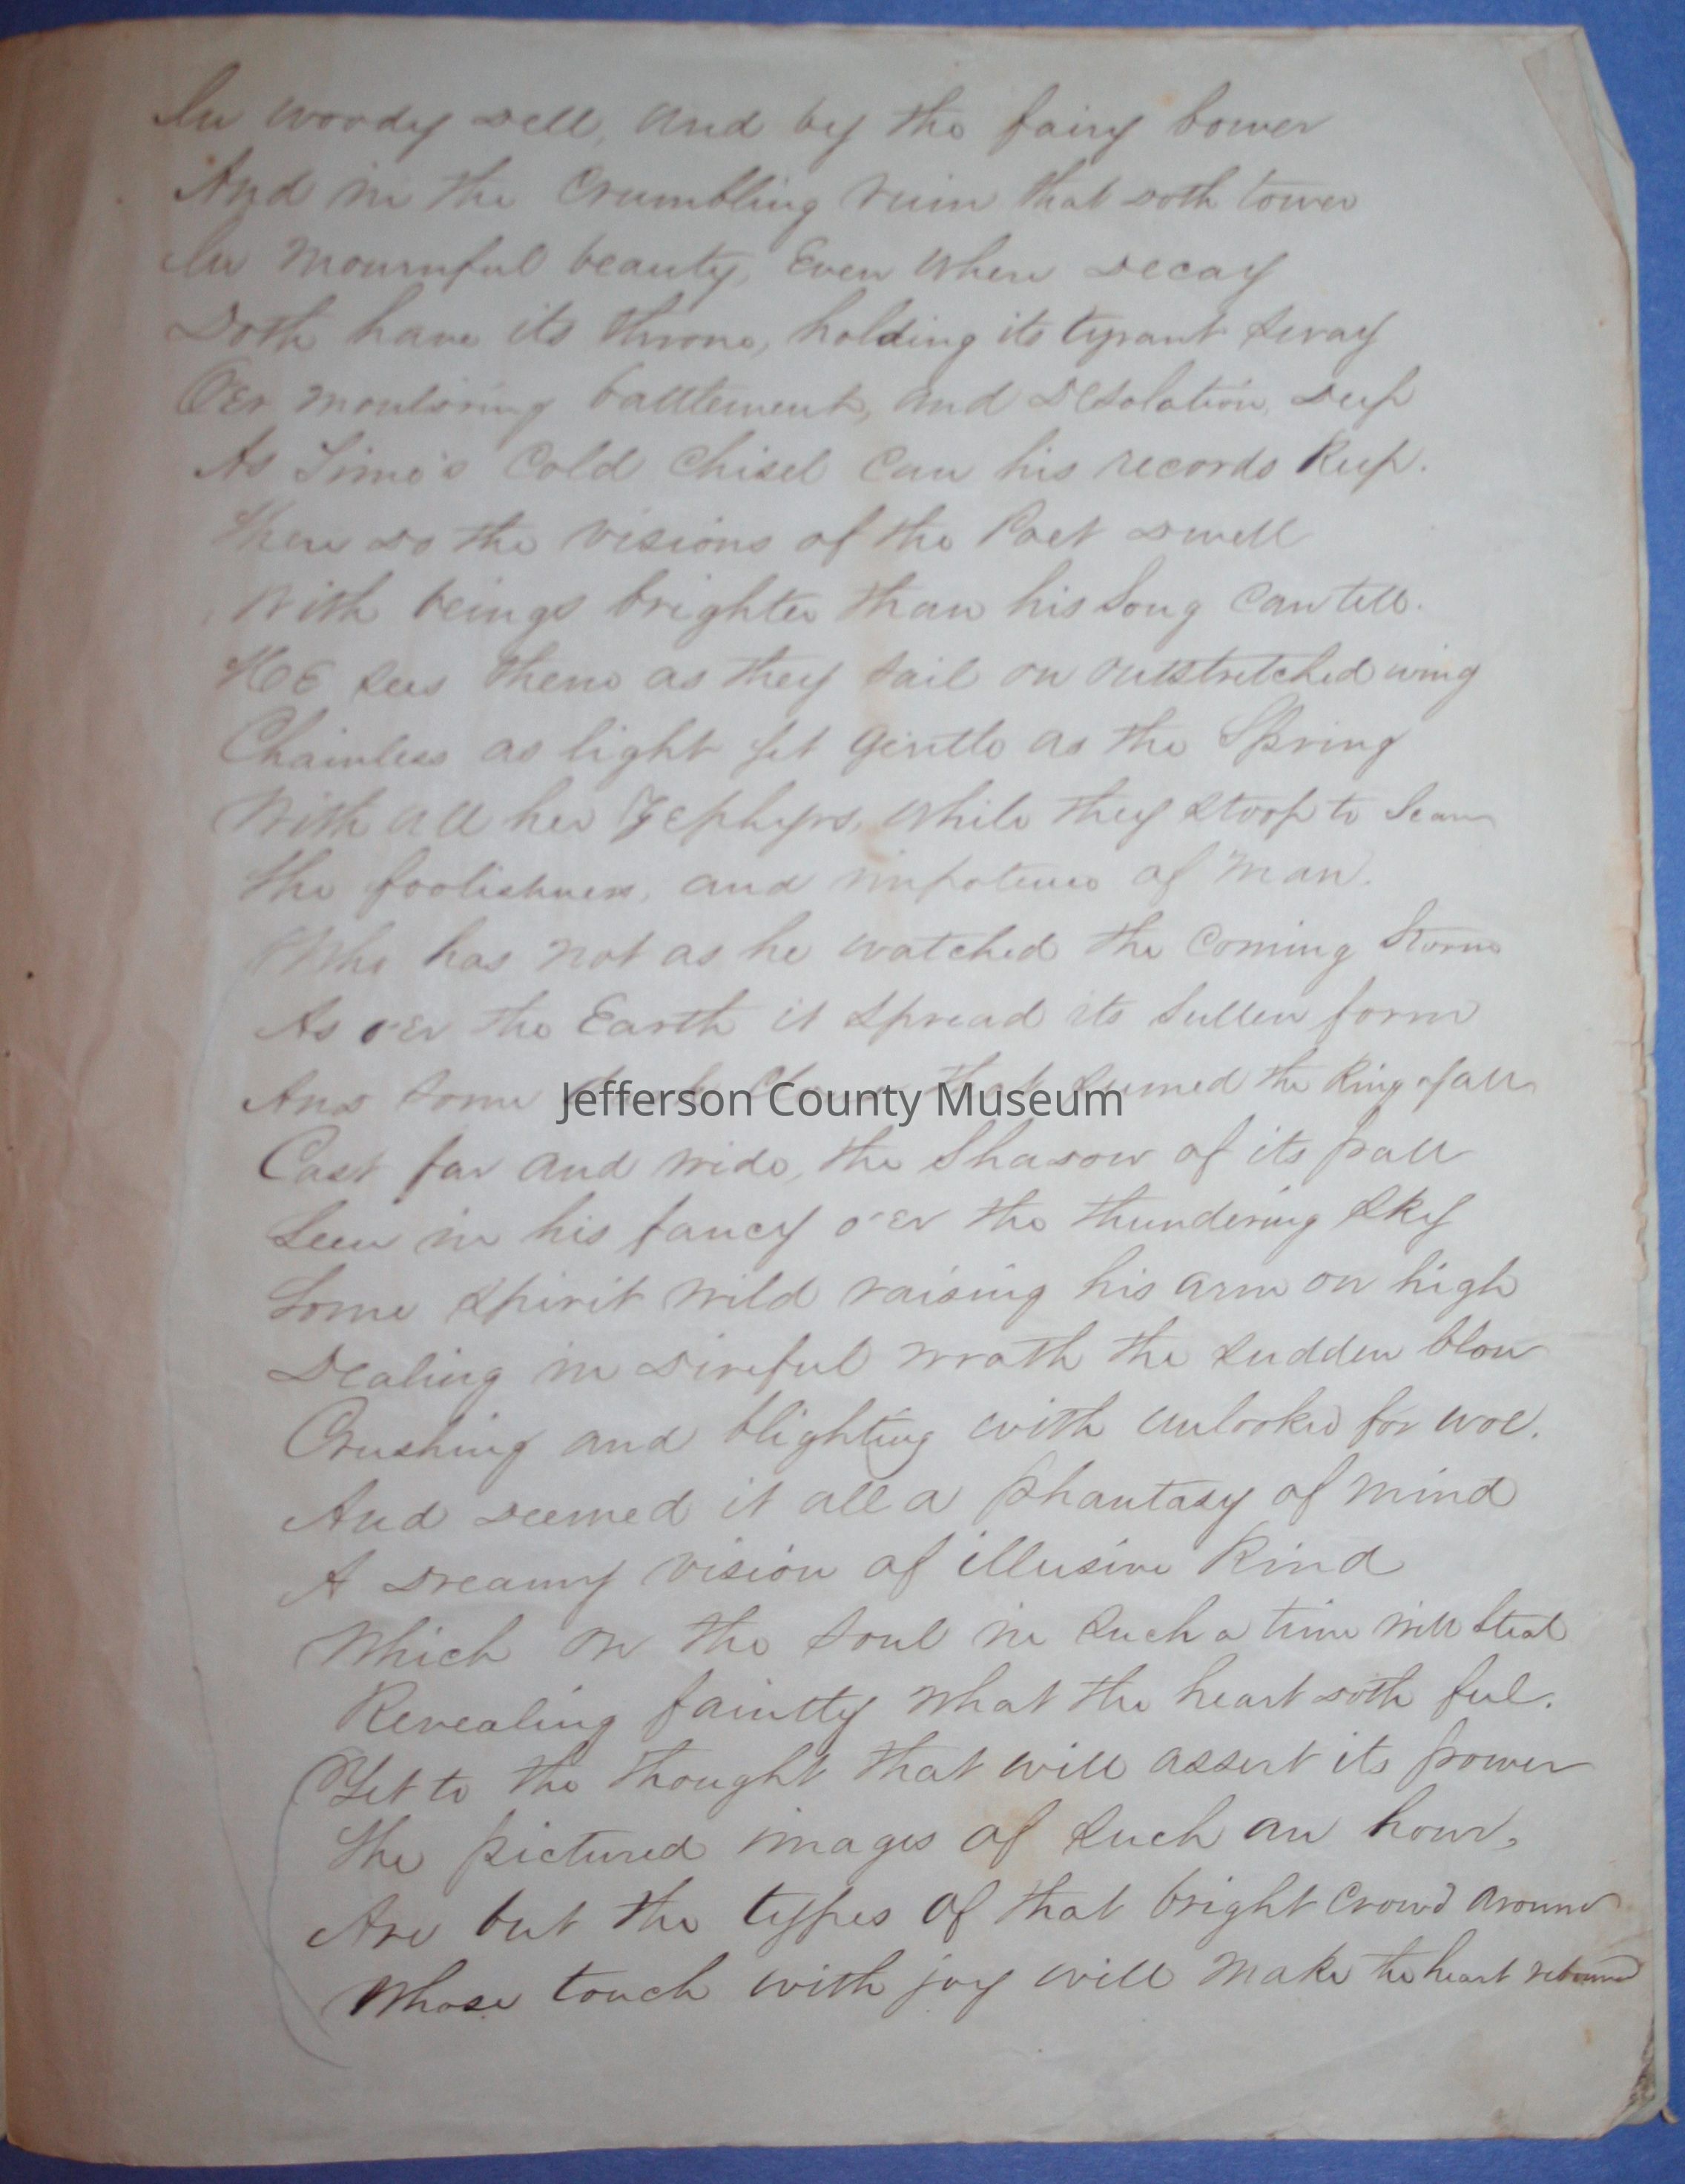 In woody dell, and by the fairy bower
And in the Crumbling ruin that doth tower
In mournful beauty, Even where decay
Doth have its throne, holding its tyrant sway
O'Er mouldering battlement, and desolation deep
As Time's Cold Chisel Can his records Keep.
There do the visions of the Poet dwell
With beings brighter than his Song Can tell.
HE sees them as they sail on outstretched wing
Chainless as light yet gentle as the Spring
With all her Zephyrs, while they stoop to Scan
The foolishness, and impotence of man.
Who has not as he watched the Coming Storm
As o'Er the Earth it spread its Sullen form
And some dark that seemed the King of all
Jefferson County Museum
Cast far and wide, the Shadow of its pall
Seen in his fancy o'er the thundering sky
Some spirit wild raising his arm on high
Dealing in direful wrath the sudden blow
Crushing and blighting with unlooked for woe.
And deemed it all a phantasy of mind
A dreamy vision of illusive Kind
Which on the soul in such a time will steal
Revealing faintly what the heart doth feel.
Yet to the thought that will assert its power
The pictured images of such an hour,
Are but the types of that bright Crowd around
Whose touch with joy will make the heart rebound